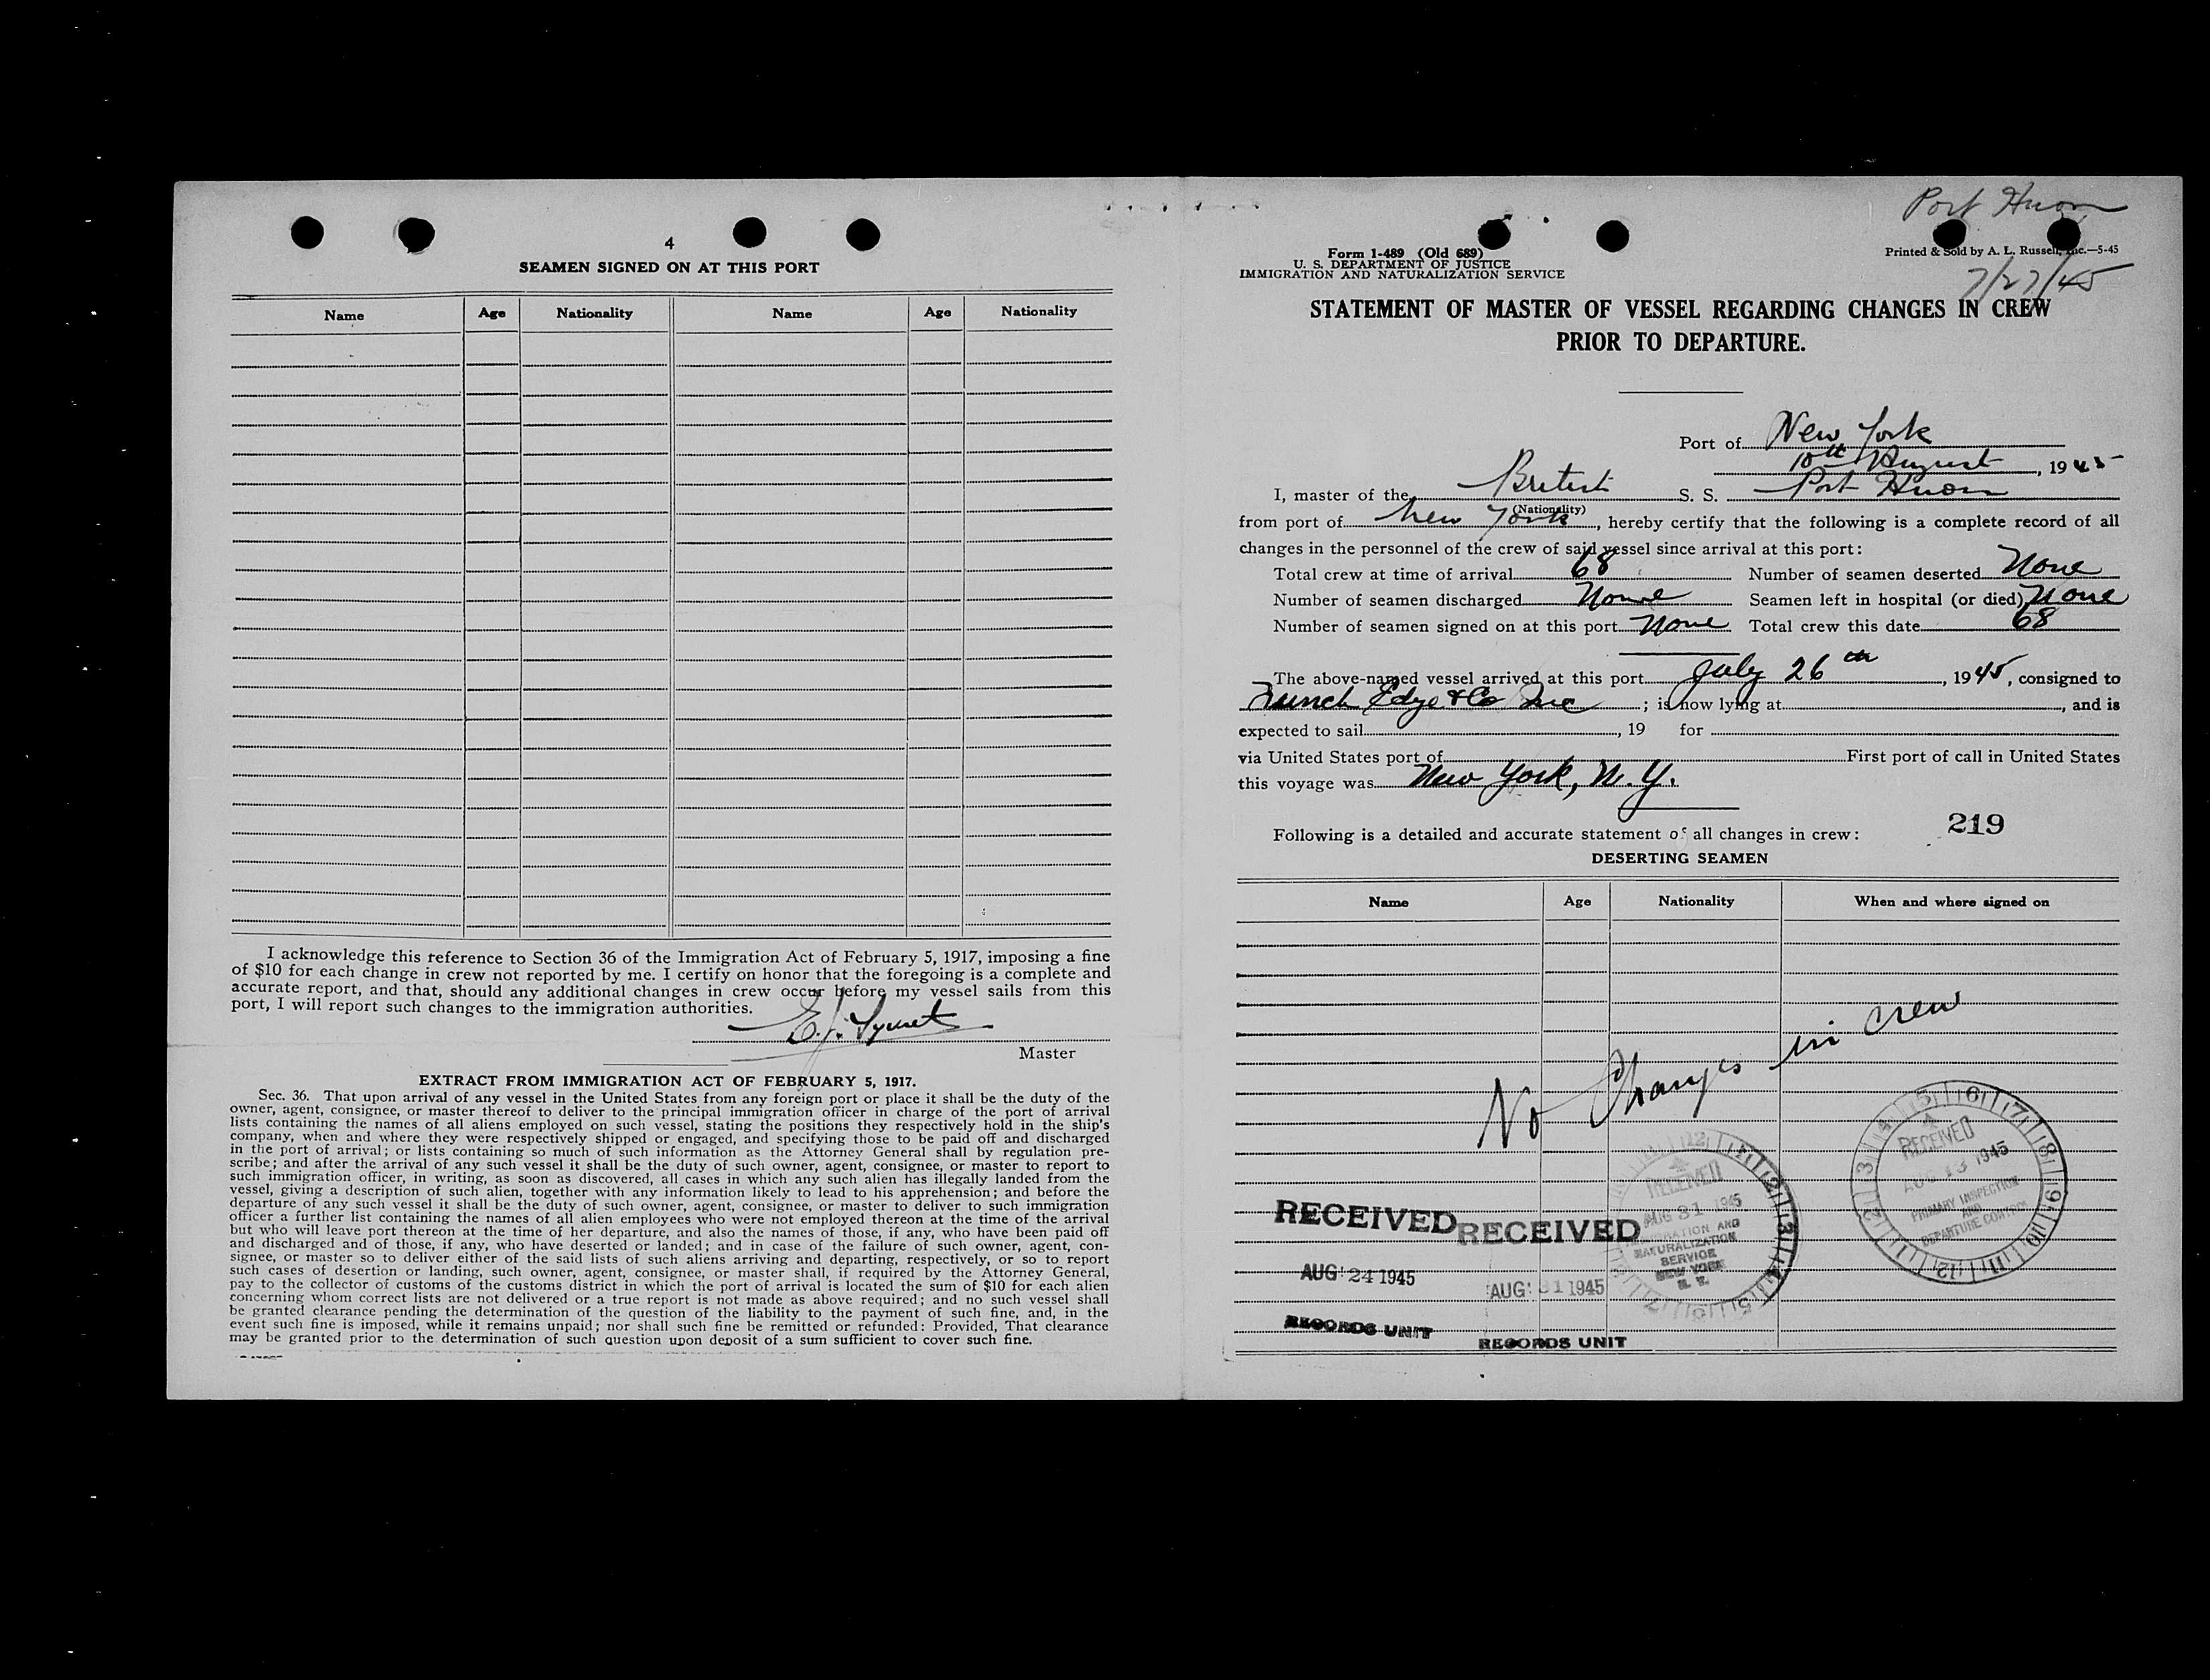 4
SEAMEN SIGNED ON AT THIS PORT
Name Age Nationality Name Age Nationality
I acknowledge this reference to Section 36 of the Immigration Act of February 5, 1917, imposing a fine
of $10 for each change in crew not reported by me. I certify on honor that the foregoing is a complete and
accurate report, and that, should any additional changes in crew occur before my vessel sails from this
port, I will report such changes to the immigration authorities.
Master
EXTRACT FROM IMMIGRATION ACT OF FEBRUARY 5, 1917.
Sec. 36. That upon arrival of any vessel in the United States from any foreign port or place it shall be the duty of the
owner, agent, consignee, or master thereof to deliver to the principal immigration officer in charge of the port of arrival
lists containing the names of all aliens employed on such vessel, stating the positions they respectively hold in the ship's
company, when and where they were respectively shipped or engaged, and specifying those to be paid off and discharged
in the port of arrival; or lists containing so much of such information as the Attorney General shall by regulation pre-
scribe; and after the arrival of any such vessel it shall be the duty of such owner, agent, consignee, or master to report to
such immigration officer, in writing, as soon as discovered, all cases in which any such alien has illegally landed from the
vessel, giving a description of such alien, together with any information likely to lead to his apprehension; and before the
departure of any such vessel it shall be the duty of such owner, agent, consignee, or master to deliver to such immigration
officer a further list containing the names of all alien employees who were not employed thereon at the time of the arrival
but who will leave port thereon at the time of her departure, and also the names of those, if any, who have been paid off
and discharged and of those, if any, who have deserted or landed; and in case of the failure of such owner, agent, con-
signee, or master so to deliver either of the said lists of such aliens arriving and departing, respectively, or so to report
such cases of desertion or landing, such owner, agent, consignee, or master shall, if required by the Attorney General,
pay to the collector of customs of the customs district in which the port of arrival is located the sum of $10 for each alien
concerning whom correct lists are not delivered or a true report is not made as above required; and no such vessel shall
be granted clearance pending the determination of the question of the liability to the payment of such fine, and, in the
event such fine is imposed, while it remains unpaid; nor shall such fine be remitted or refunded: Provided, That clearance
may be granted prior to the determination of such question upon deposit of a sum sufficient to cover such fine.
Port Huon
Form 1-489 (Old 689)
U. S. DEPARTMENT OF JUSTICE
IMMIGRATION AND NATURALIZATION SERVICE
Printed & Sold by A. L. Russell, Inc.—5-45
7/27/45
STATEMENT OF MASTER OF VESSEL REGARDING CHANGES IN CREW
PRIOR TO DEPARTURE.
Port of New York
10th August, 1945
I, master of the British S. S. Port Huon
(Nationality)
from port of New York, hereby certify that the following is a complete record of all
changes in the personnel of the crew of said vessel since arrival at this port:
Total crew at time of arrival 68 Number of seamen deserted None
Number of seamen discharged None Seamen left in hospital (or died) None
Number of seamen signed on at this port None Total crew this date 68
The above-named vessel arrived at this port July 26th, 1945, consigned to
Funch Edye & Co Inc; is now lying at, and is
expected to sail, 19 for
via United States port of First port of call in United States
this voyage was New York, N.Y.
Following is a detailed and accurate statement of all changes in crew:
219
DESERTING SEAMEN
Name Age Nationality When and where signed on
No Changes in crew
RECEIVED
AUG 24 1945
RECORDS UNIT
RECEIVED
AUG 31 1945
RECORDS UNIT
RECEIVED
AUG 31 1945
IMMIGRATION AND
NATURALIZATION
SERVICE
NEW YORK
N. Y.
RECEIVED
AUG 13 1945
PRIMARY INSPECTION
AND
DEPARTURE CONTROL